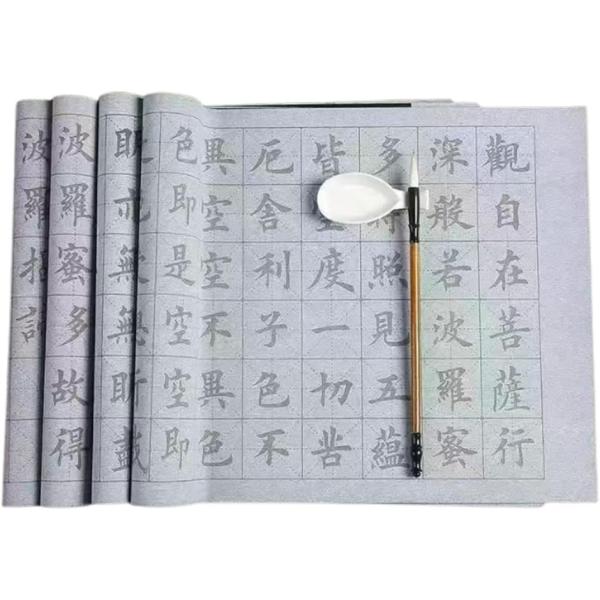 觀自在菩薩行
深般若波羅蜜
多時照見五蘊
皆空度一切苦
厄舍利子色不
異空空不異色
色即是空空即
亦無無
波羅蜜多故得
波羅揭